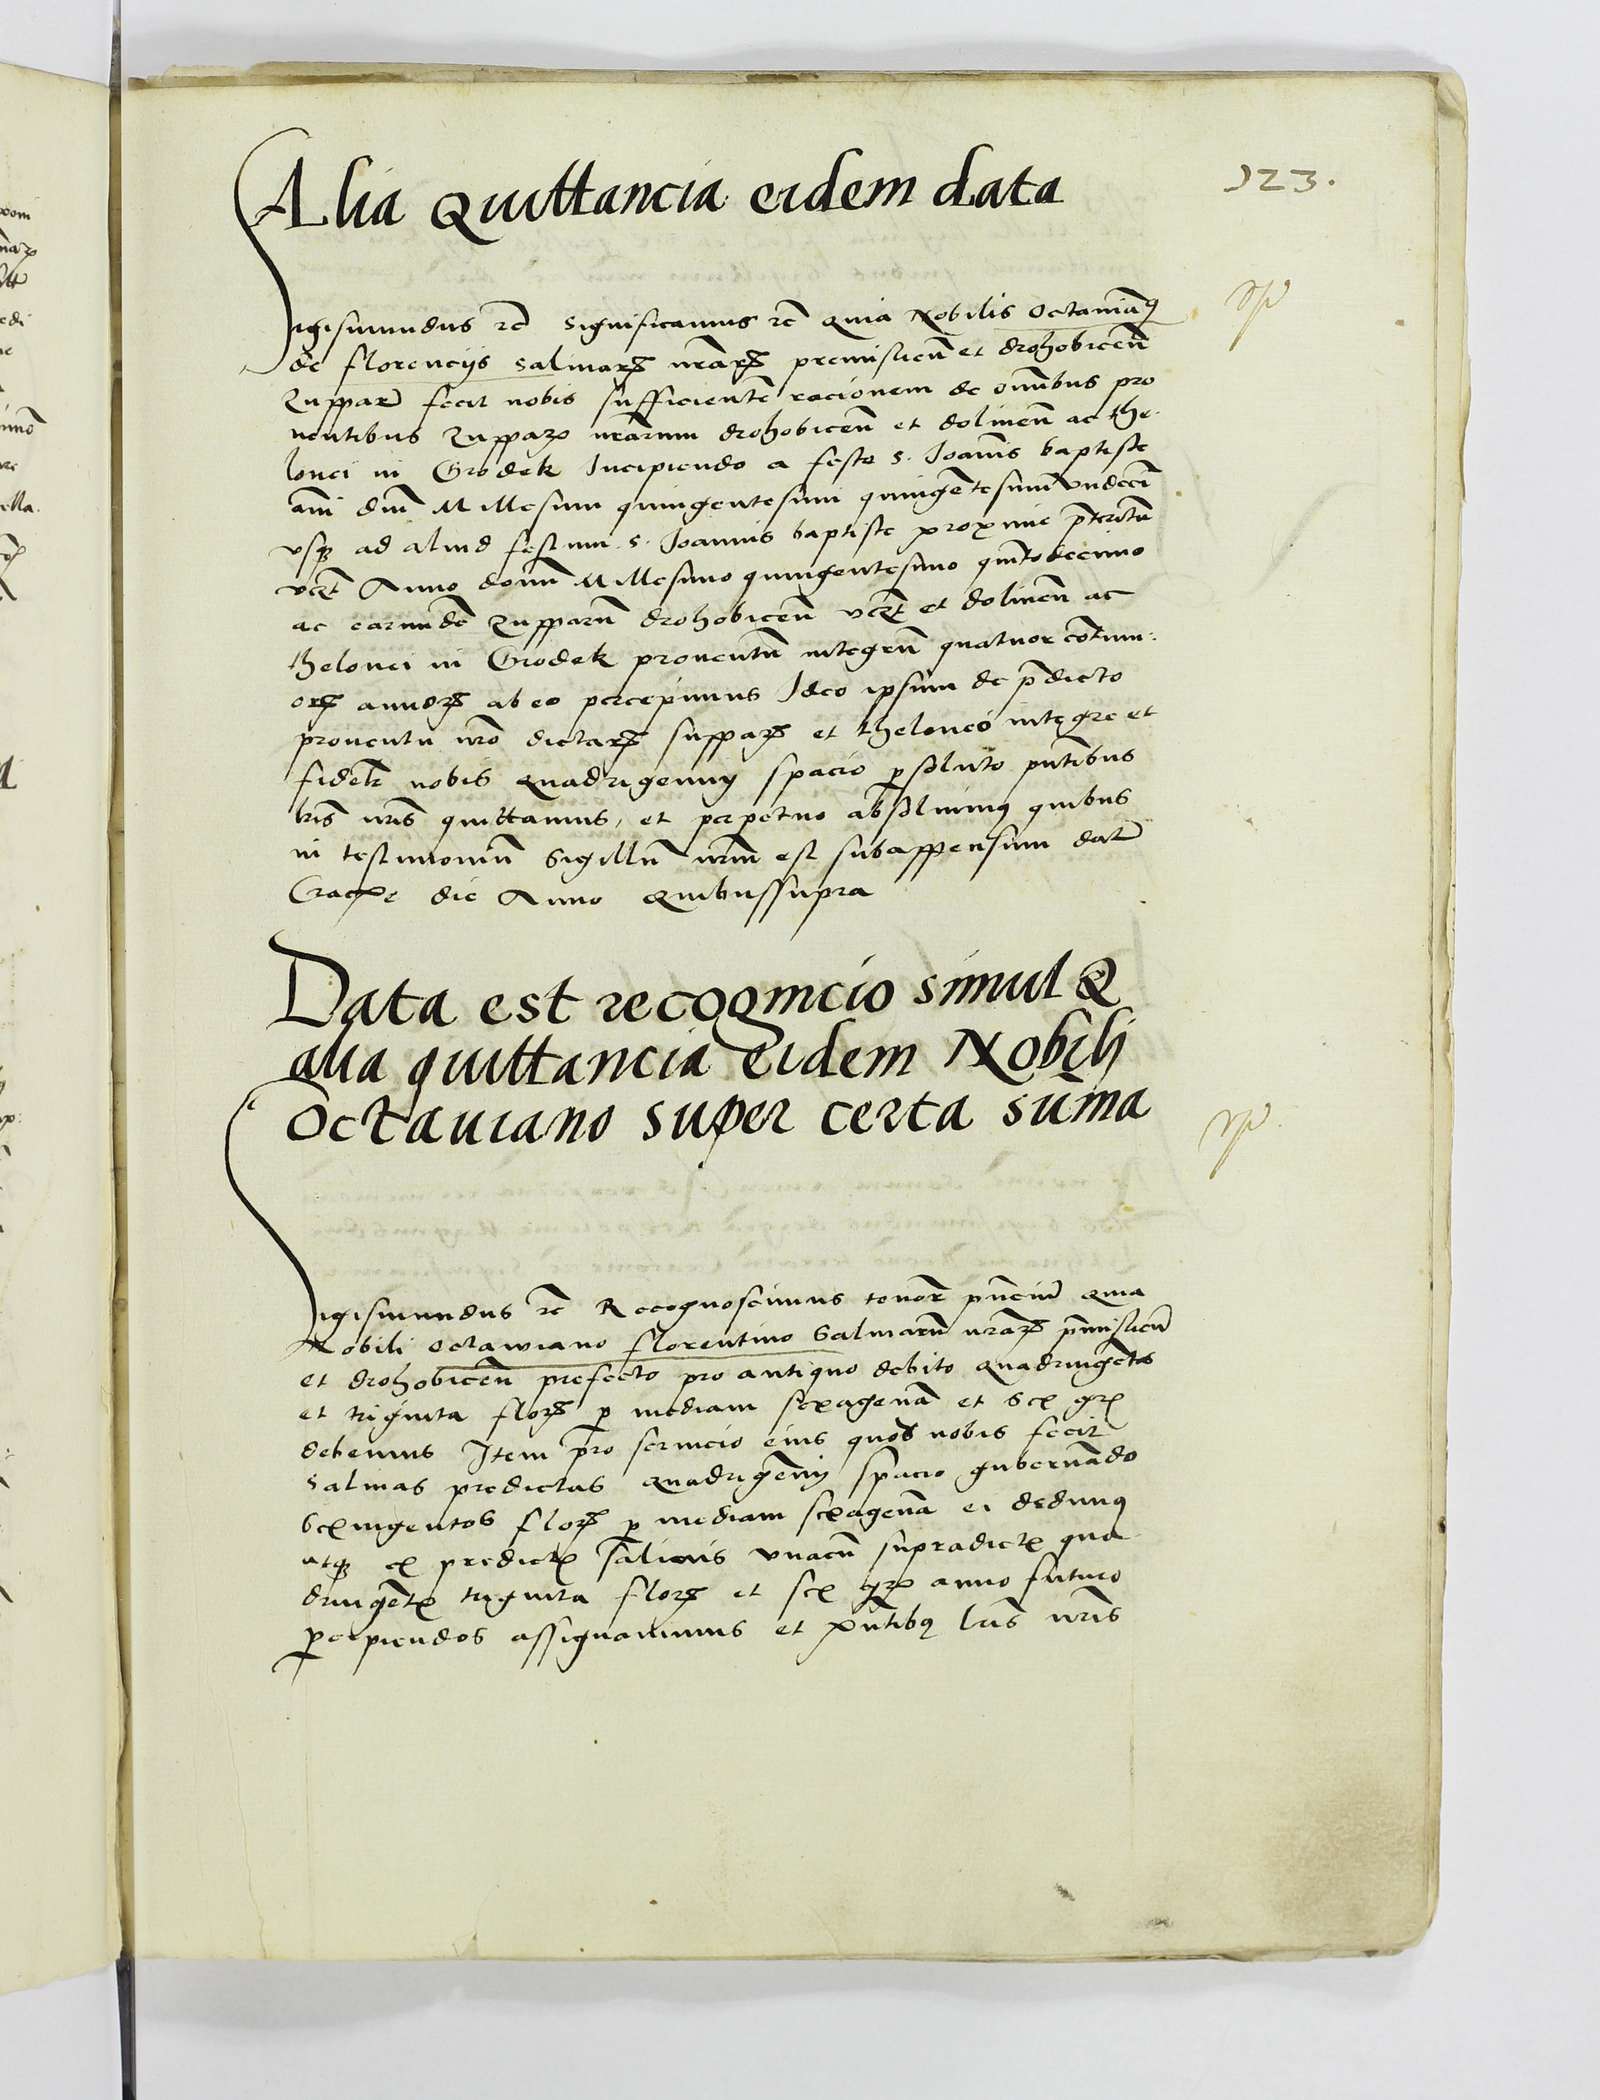 123.
Alia Quittancia eidem data
Sigismundus rc̄ Significamus rc̄ Quia Nobilis Octavianꝰ
de florencijs salinarꝝ nr̄arꝝ premislien̄ et drohobicen̄
Zuppar̄ fecit nobis sufficientē racionem de om̄ibus pro
ventibus Zupparꝝ nr̄arum drohobicen̄ et dolinen̄ ac the
lonei in Grodek Incipiendo a festo s. Joan̄is baptiste
an̄i dn̄i Millesimi quingentesimi quingētesimi undeci
usqꝫ ad aliud festum s. Joannis baptiste proxime p̄teritū
vcꝫt Anno domi Millesimo quingentesimo quītodecimo
ac earundē Zupparū drohobicen̄ vcꝫt et dolinen̄ ac
thelonei in Grodek proventū integrū quatuor cōtinu:
orꝝ annorꝝ ab eo percepimus Ideo ipsum de p̄dicto
proventu nr̄o dictarꝝ supparꝝ et theloneo integre et
fidelr̄ nobis Quadrigennij spacio ꝑsoluto pn̄tibus
lr̄is nr̄is quittamus, et perpetuo absolvimꝰ quibus
in testimoniū Sigillū nr̄um est subappensum dat̄
Cracovie die Anno Quibussupra
Data est recognicio simul &
alia quittancia eidem Nobilj
Octaviano super certa sūma
Sigismundus rc̄ Recognoscimus tenor̄ pn̄ciū Quia
Nobili Octawiano florentino Salinarū nr̄arꝝ p̄mislien̄
et drohobicen̄ prefecto pro antiquo debito Quadringētos
et triginta florꝝ ꝑ mediam sexagenā et sex grꝭ
debemus Item pro servicio eius quod nobis fecit
Salinas predictas Quadrigēnij spacio gubernādo
Sexingentos florꝝ ꝑ mediam sexagenā ei dedimꝰ
atqꝫ ex predictꝭ salinis unacū supradictꝭ qua
dringētꝭ triginta florꝝ et sex grꝭ anno futuro
ꝑcipiendos assignavimus et pn̄tibꝰ lr̄is nr̄is